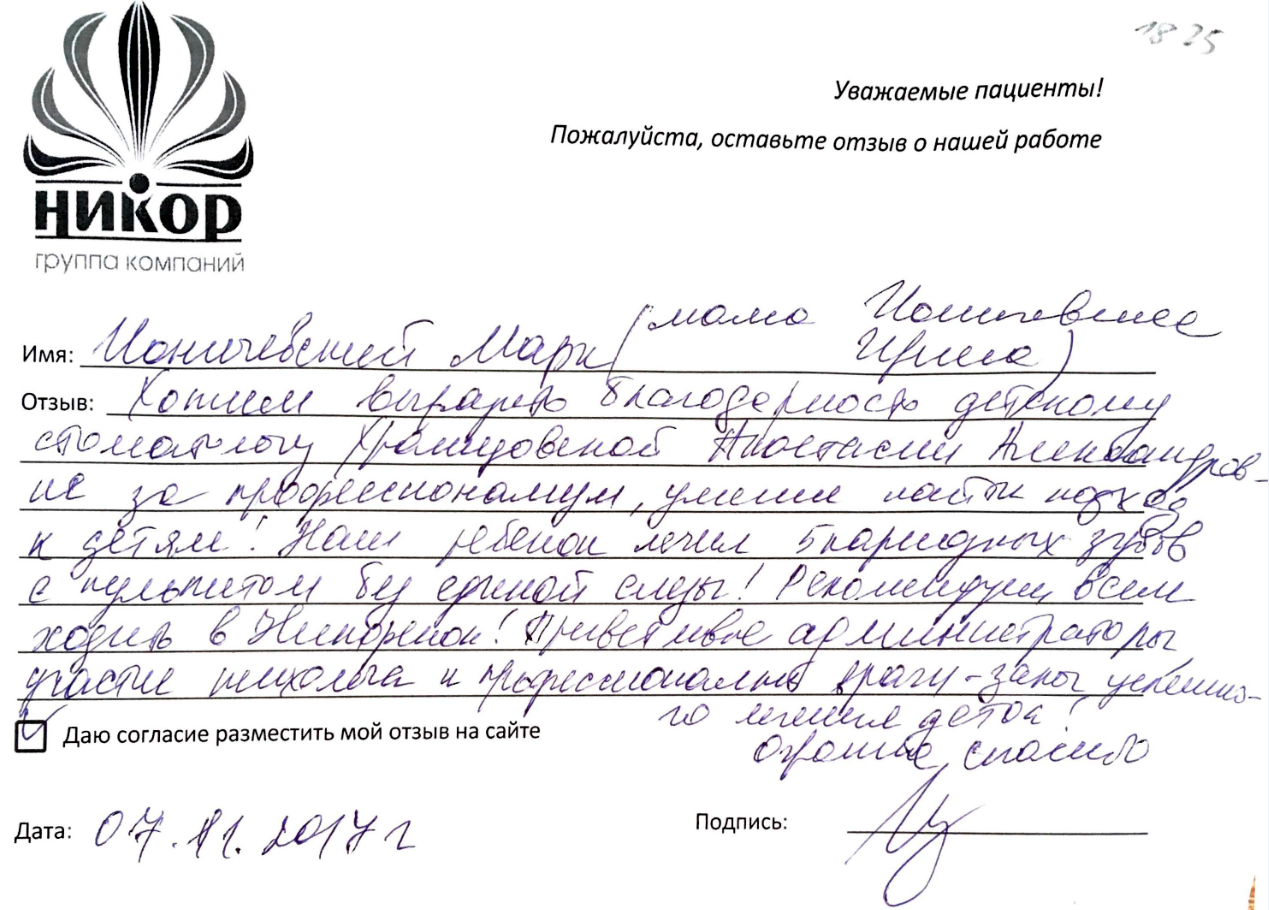 18 25
Уважаемые пациенты!
Пожалуйста, оставьте отзыв о нашей работе
НИКОР
группа компаний
(мама
Имя: Марк Ирина)
Отзыв: Хотим выразить благодарность детскому
стоматологу Анастасии Александров-
не за профессионализм, умение найти подход
к детям! Наш ребенок лечил 5 кариозных зубов
с пульпитом без единой слезы! Рекомендуем всем
ходить в Никоренок! Приветливые администраторы
участие психолога и профессиональные врачи - залог успешно-
го лечения деток!
Даю согласие разместить мой отзыв на сайте
Огромное спасибо
Дата: 07.11.2017 г
Подпись: